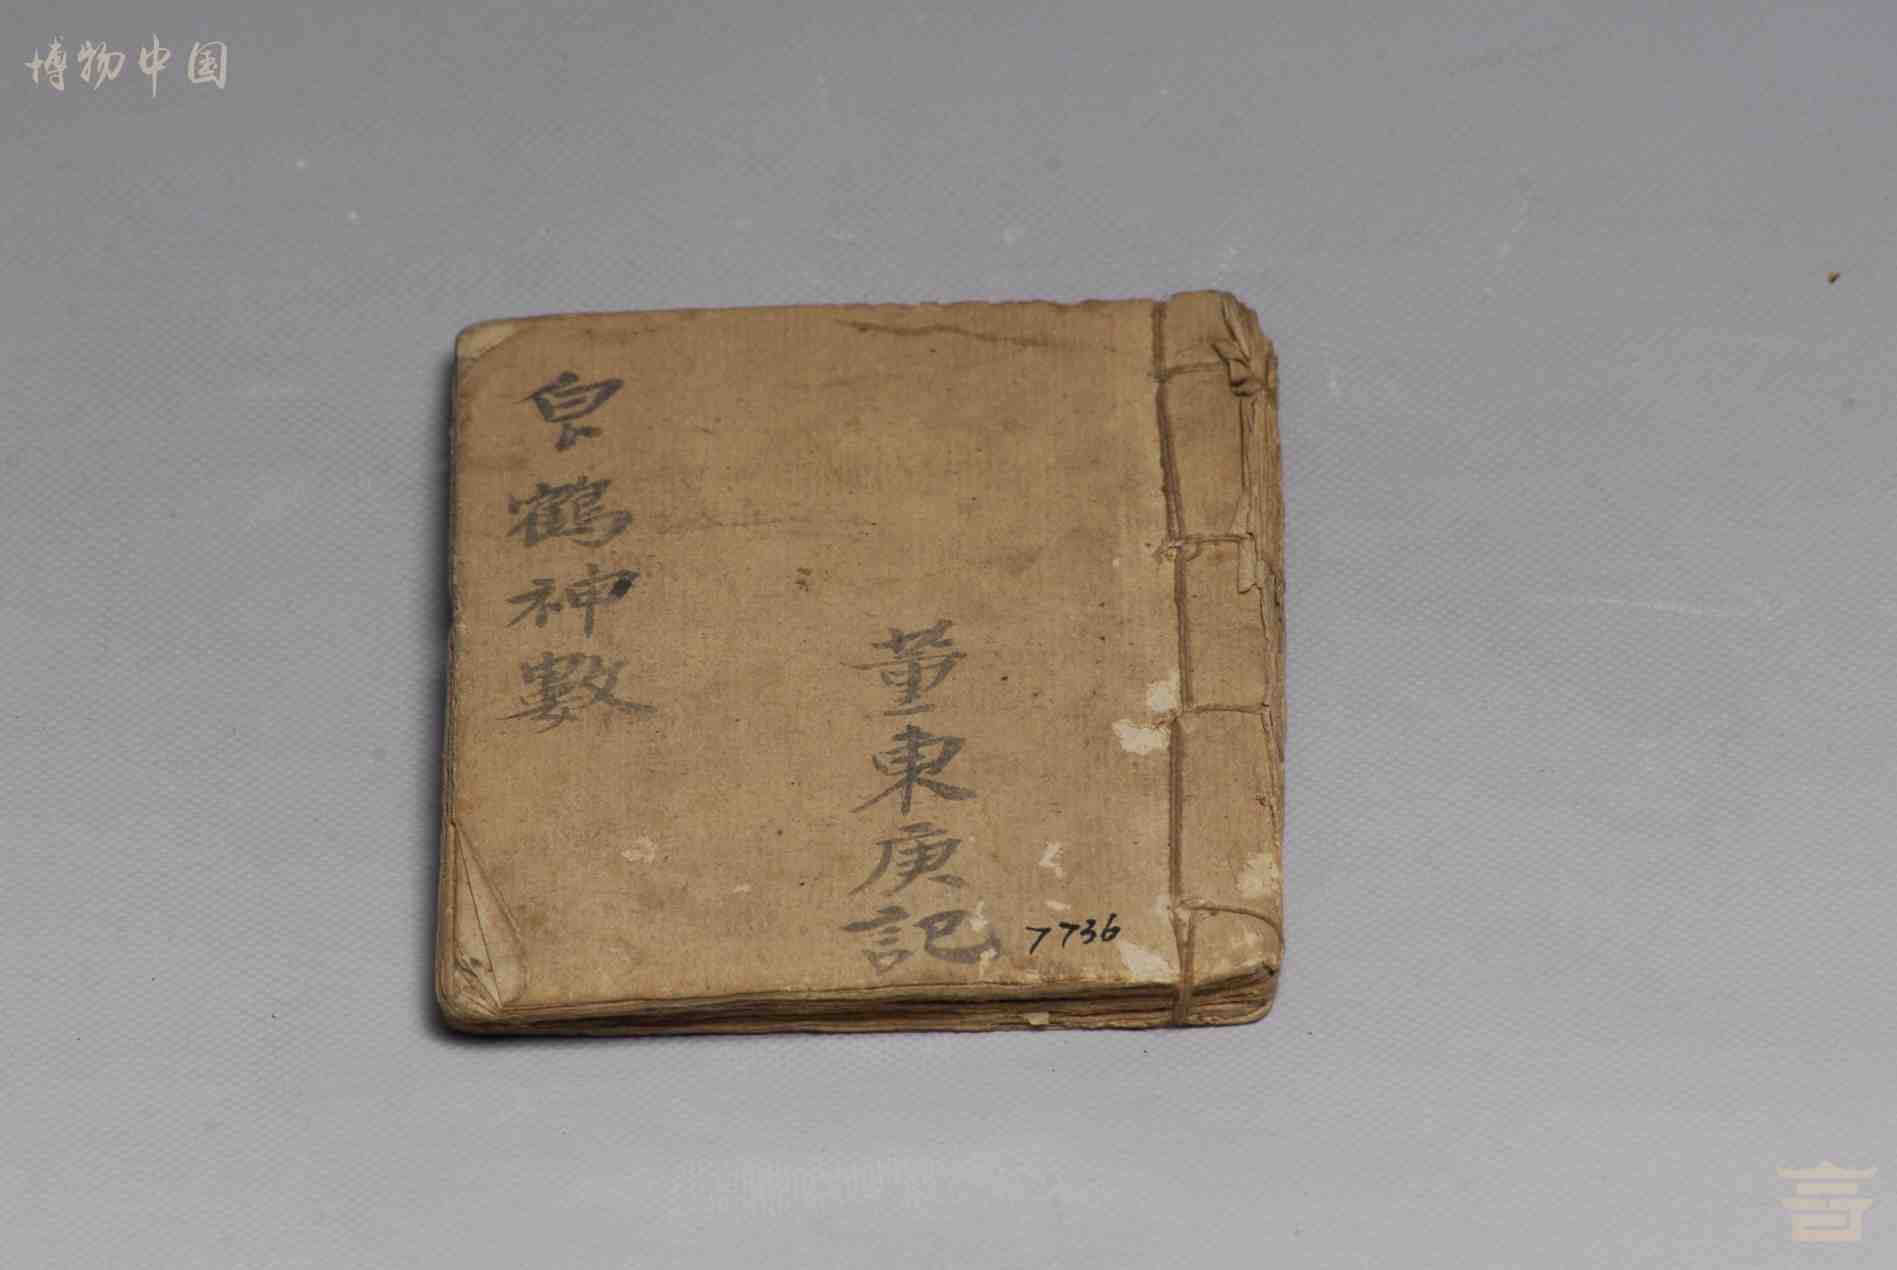 博物中国
董東庚記
鶴神數
7736